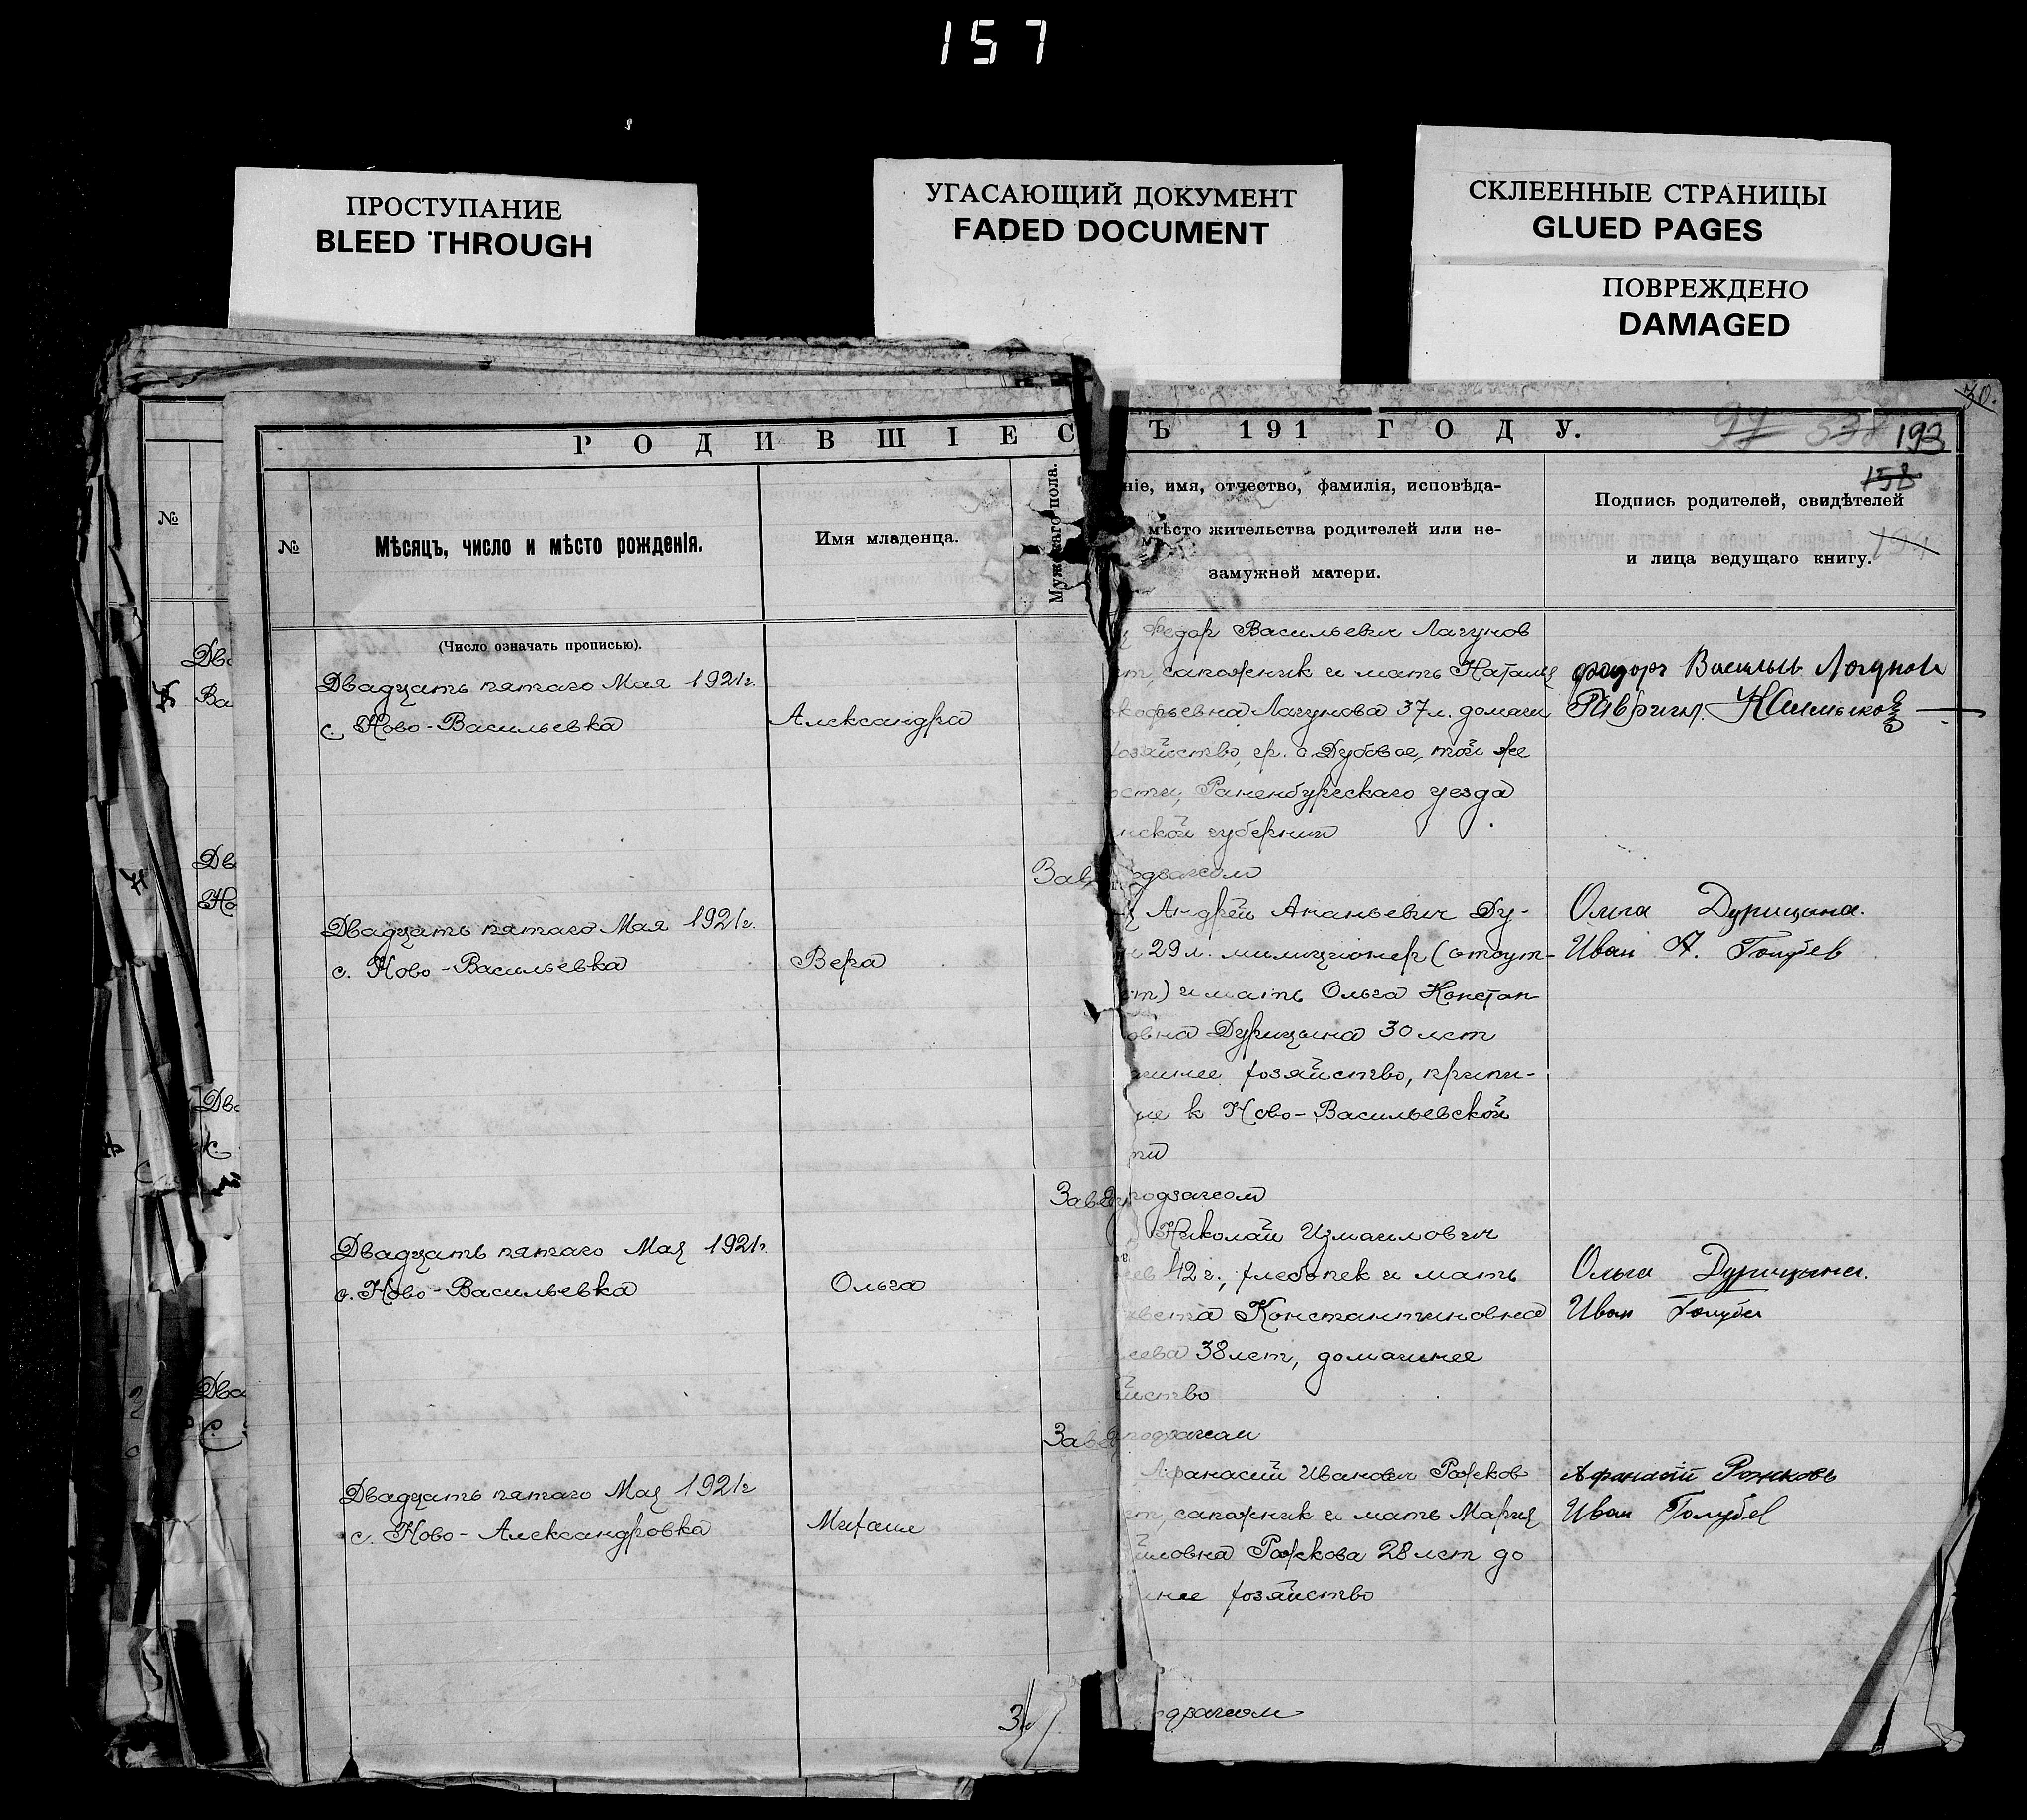 157
ПРОСТУПАНИЕ
BLEED THROUGH
УГАСАЮЩИЙ ДОКУМЕНТ
FADED DOCUMENT
СКЛЕЕННЫЕ СТРАНИЦЫ
GLUED PAGES
ПОВРЕЖДЕНО
DAMAGED
30.
РОДИВШІЕС
Ъ 191 ГОДУ.
193
158
№
№
Мѣсяцъ, число и мѣсто рожденія.
Имя младенца.
Мужскаго пола.
ніе, имя, отчество, фамилія, исповѣда-
мѣсто жительства родителей или не-
замужней матери.
Подпись родителей, свидѣтелей
и лица ведущаго книгу.
(Число означать прописью).
Двадцать пятаго Мая 1921г.
с. Ново-Васильевка
Александра
Федор Васильевич Лагунов
ет, сапожник и мать Наталия
кофьевна Лагунова 37 л. домаш
хозяйство, гр. с. Дубовое, той же
ости, Раненбургскаго уезда
нской губернии
Зав
одзагсом
Федоръ Васильв Лагунов
Гавриил
Двадцать пятаго Мая 1921г.
с. Ново-Васильевка
Вера
Андрей Ананьевич Ду-
29 л. милиционер (отсут-
ет) и мать Ольга Констан
овна Дурицына 30 лет
шнее хозяйство, припи-
ые к Ново-Васильевской
сти
Завед
подзагсом
Ольга Дурицына.
Иван А. Голубев
Двадцать пятаго Мая 1921г.
с. Ново-Васильевка
Ольга
Николай Измаилович
еев 42 г., хлебопек и мать
авета Константиновна
сева 38 лет, домашнее
яйство
Завед
подзагсом
Ольга Дурицына.
Иван Голубев
Двадцать пятаго Мая 1921г
с. Ново-Александровка
Михаил
Афанасий Иванович Рожков
ет, сапожник и мать Мария
йловна Рожкова 28 лет до
шнее хозяйство
дзагсом
Афанасій Рожковъ
Иван Голубев